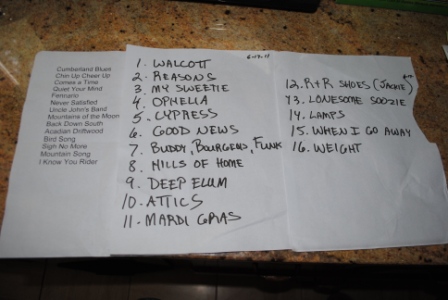 Cumberland Blues
Chin Up Cheer Up
Comes a Time
Quiet Your Mind
Fennario
Never Satisfied
Uncle John's Band
Mountains of the Moon
Back Down South
Acadian Driftwood
Bird Song
Sigh No More
Mountain Song
I Know You Rider
1. WALCOTT
2. REASONS
3. MY SWEETIE
4. OPHELIA
5. CYPRESS
6. GOOD NEWS
7. BUDDY, BOURGEOIS, FUNK
8. HILLS OF HOME
9. DEEP ELUM
10. ATTICS
11. MARDI GRAS
12. R+R SHOES (JACKIE)
13. LONESOME SOOZIE
14. LAMPS
15. WHEN I GO AWAY
16. WEIGHT